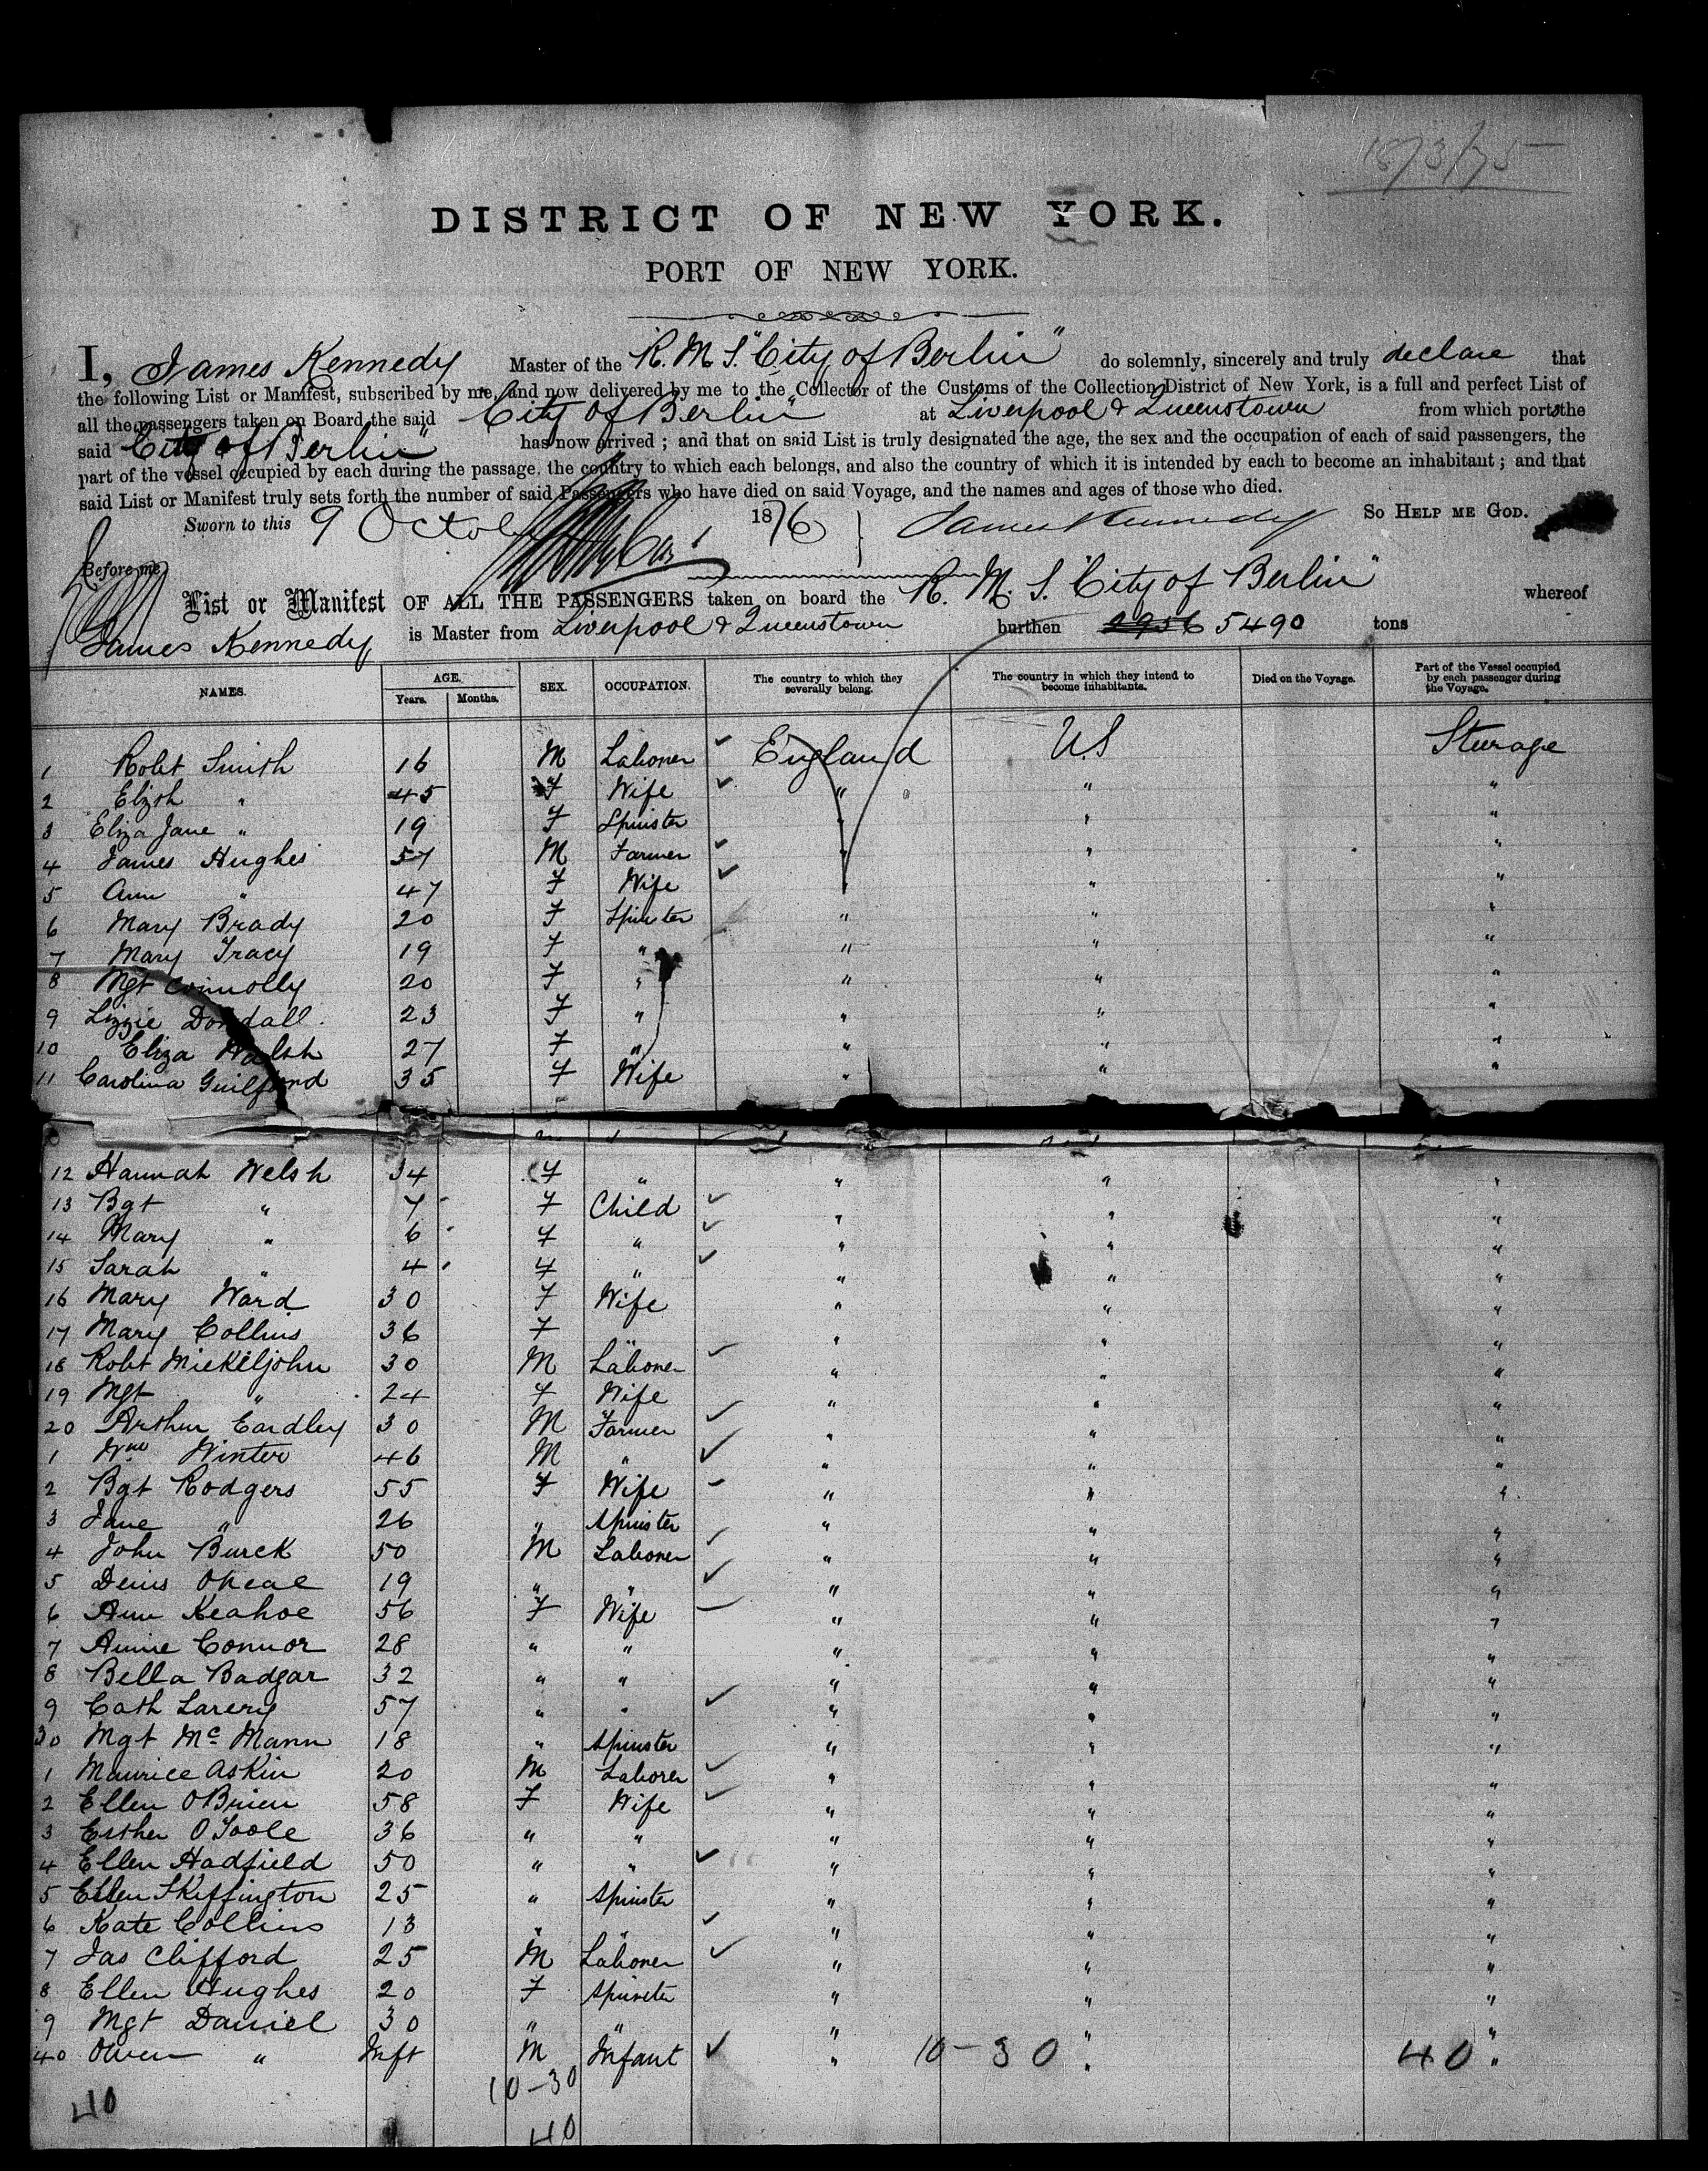 1873/75
DISTRICT OF NEW YORK.
PORT OF NEW YORK.
I, James Kennedy Master of the R.M.S. "City of Berlin" do solemnly, sincerely and truly declare that
the following List or Manifest, subscribed by me, and now delivered by me to the Collector of the Customs of the Collection District of New York, is a full and perfect List of
all the passengers taken on Board the said "City of Berlin" at Liverpool & Queenstown from which ports the
said "City of Berlin" has now arrived; and that on said List is truly designated the age, the sex and the occupation of each of said passengers, the
part of the vessel occupied by each during the passage, the country to which each belongs, and also the country of which it is intended by each to become an inhabitant; and that
said List or Manifest truly sets forth the number of said Passengers who have died on said Voyage, and the names and ages of those who died.
Sworn to this 9 October 1876 James Kennedy SO HELP ME GOD.
Before me,
List or Manifest OF ALL THE PASSENGERS taken on board the R. M. S. "City of Berlin" whereof
James Kennedy is Master from Liverpool & Queenstown burthen 2956 5490 tons
NAMES. AGE. Years. Months. SEX. OCCUPATION. The country to which they severally belong. The country in which they intend to become inhabitants. Died on the Voyage. Part of the Vessel occupied by each passenger during the Voyage.
1 Robt Smith 16 M Laborer England U.S Steerage
2 Elizth " 45 F Wife " " "
3 Eliza Jane " 19 F Spinster " " "
4 James Hughes 57 M Farmer " " "
5 Ann " 47 F Wife " " "
6 Mary Brady 20 F Spinster " " "
7 Mary Tracy 19 F " " " "
8 Mgt Connolly 20 F " " " "
9 Lizzie Dondall 23 F " " " "
10 Eliza Walsh 27 F " " " "
11 Carolina Guilford 35 F Wife " " "
12 Hannah Welsh 34 F " " " "
13 Bgt " 7 F Child " " "
14 Mary " 6 F " " " "
15 Sarah " 4 F " " " "
16 Mary Ward 30 F Wife " " "
17 Mary Collins 36 F " " " "
18 Robt Miekeljohn 30 M Laborer " " "
19 Mgt " 24 F Wife " " "
20 Arthur Eardley 30 M Farmer " " "
1 Wm Winter 46 M " " " "
2 Bgt Rodgers 55 F Wife " " "
3 Jane " 26 " Spinster " " "
4 John Burck 50 M Laborer " " "
5 Denis OKeal 19 " " " " "
6 Ann Keahoe 56 F Wife " " "
7 Annie Connor 28 " " " " "
8 Bella Badgar 32 " " " " "
9 Cath Larery 57 " " " " "
30 Mgt Mc Mann 18 " Spinster " " "
1 Maurice Askin 20 M Laborer " " "
2 Ellen OBrien 58 F Wife " " "
3 Esther OToole 36 " " " " "
4 Ellen Hadfield 50 " " " " "
5 Ellen Skiffington 25 " Spinster " " "
6 Kate Collins 13 " " " " "
7 Jas Clifford 25 M Laborer " " "
8 Ellen Hughes 20 F Spinster " " "
9 Mgt Daniel 30 " " " " "
40 Owen " Inft M Infant " 10-30 " 40 "
10-30
40 40